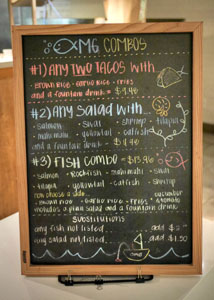 XMG COMBOS
#1) ANY TWO TACOS with
• BROWN RICE • Garlic Rice • Fries
and a fountain drink = $9.96
#2) ANY SALAD with
• Salmon • Swai • Shrimp • tilapia
• mahi mahi • yellowtail • catfish
and a fountain drink = $11.96
#3) FISH COMBO = $13.96
• Salmon • Rockfish • mahi mahi • Swai
• tilapia • yellowtail • Catfish • Shrimp
now choose a side
• Brown rice • Garlic rice • Fries
includes a side salad and a fountain drink
Substitutions
any fish not listed add $3
any side not listed add $1.50